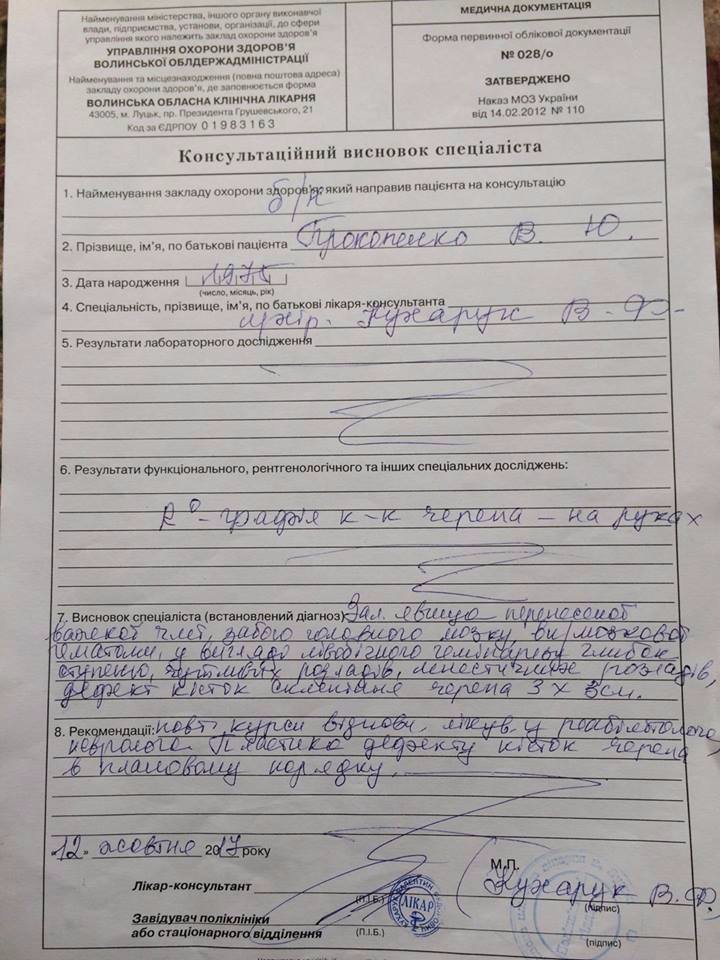 Найменування міністерства, іншого органу виконавчої
влади, підприємства, установи, організації, до сфери
управління якого належить заклад охорони здоров'я
УПРАВЛІННЯ ОХОРОНИ ЗДОРОВ'Я
ВОЛИНСЬКОЇ ОБЛДЕРЖАДМІНІСТРАЦІЇ
Найменування та місцезнаходження (повна поштова адреса)
закладу охорони здоров'я, де заповнюється форма
ВОЛИНСЬКА ОБЛАСНА КЛІНІЧНА ЛІКАРНЯ
43005, м. Луцьк, пр. Президента Грушевського, 21
Код за ЄДРПОУ 0 1 9 8 3 1 6 3
МЕДИЧНА ДОКУМЕНТАЦІЯ
Форма первинної облікової документації
№ 028/о
ЗАТВЕРДЖЕНО
Наказ МОЗ України
від 14.02.2012 № 110
Консультаційний висновок спеціаліста
1. Найменування закладу охорони здоров'я, який направив пацієнта на консультацію
б/н
2. Прізвище, ім'я, по батькові пацієнта Прокопенко В. Ю.
3. Дата народження 1975
(число, місяць, рік)
4. Спеціальність, прізвище, ім'я, по батькові лікаря-консультанта
Кухарук В. Ф.
5. Результати лабораторного дослідження
6. Результати функціонального, рентгенологічного та інших спеціальних досліджень:
R°-графія к-к черепа – на руках
7. Висновок спеціаліста (встановлений діагноз) Зал. явища перенесеної
важкої чмт, забою головного мозку, вн/мозкової
гематоми, у вигляді лівобічного геміпарезу глибок.
ступеню, чутливих розладів, розладів,
дефект кісток склепіння черепа 3 х 3см.
8. Рекомендації: повт. курси віднов. лікув. у реабілітолога,
невролога. Пластика дефекту кісток черепа,
в плановому порядку.
«12» жовтня 2017 року
М.П.
Лікар-консультант Кухарук В.Ф.
(П.І.Б.) (підпис)
ЛІКАР
Завідувач поліклініки
або стаціонарного відділення
(П.І.Б.) (підпис)